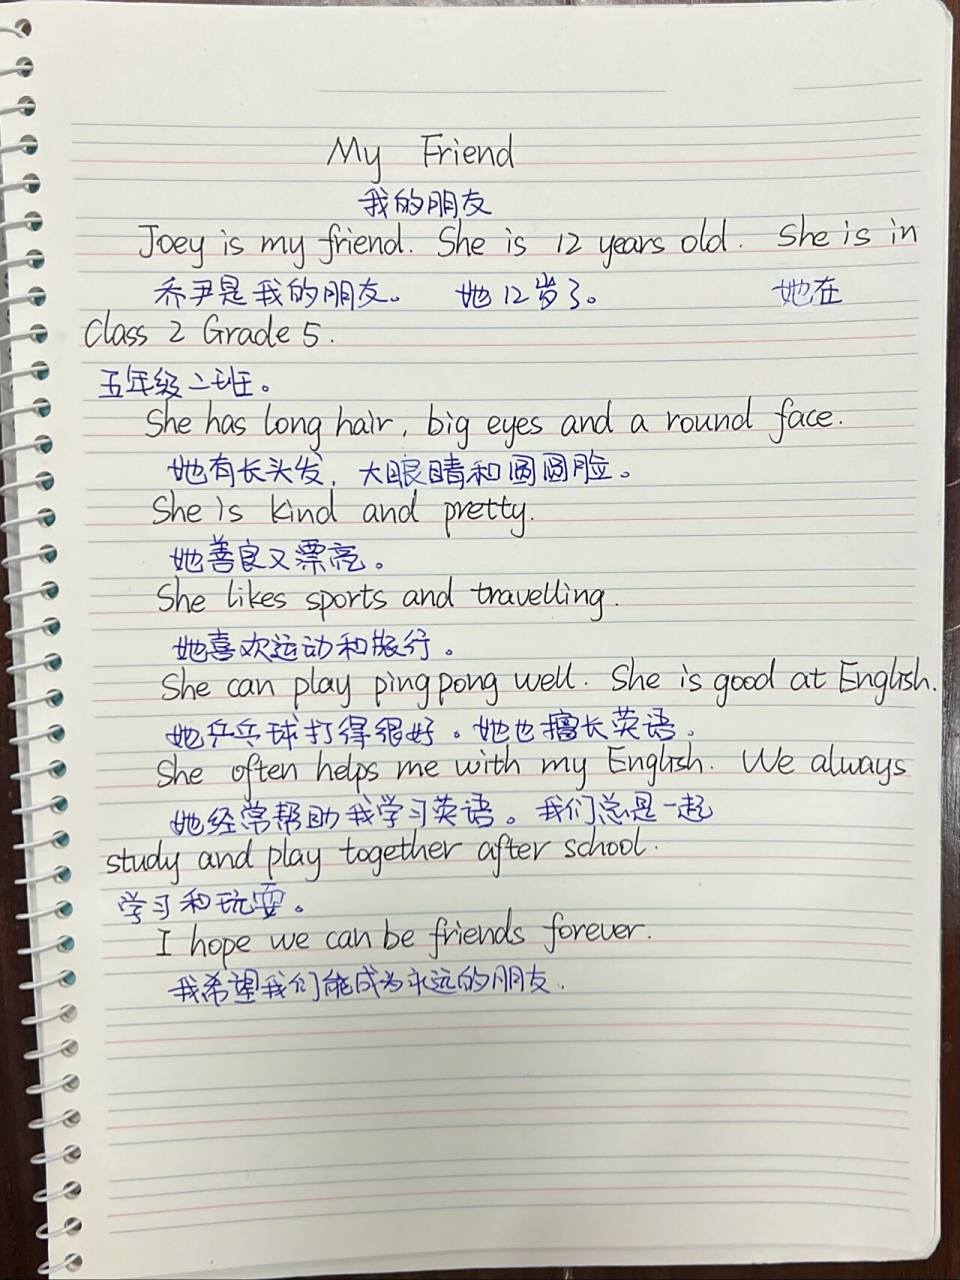 My Friend
我的朋友
Joey is my friend. She is 12 years old. She is in
乔尹是我的朋友。 她12岁了。 她在
Class 2 Grade 5.
五年级二班。
She has long hair, big eyes and a round face.
她有长头发, 大眼睛和圆圆脸。
She is kind and pretty.
她善良又漂亮。
She likes sports and travelling.
她喜欢运动和旅行。
She can play ping pong well. She is good at English.
她乒乓球打得很好。她也擅长英语。
She often helps me with my English. We always
她经常帮助我学习英语。我们总是一起
study and play together after school.
学习和玩耍。
I hope we can be friends forever.
我希望我们能成为永远的朋友.